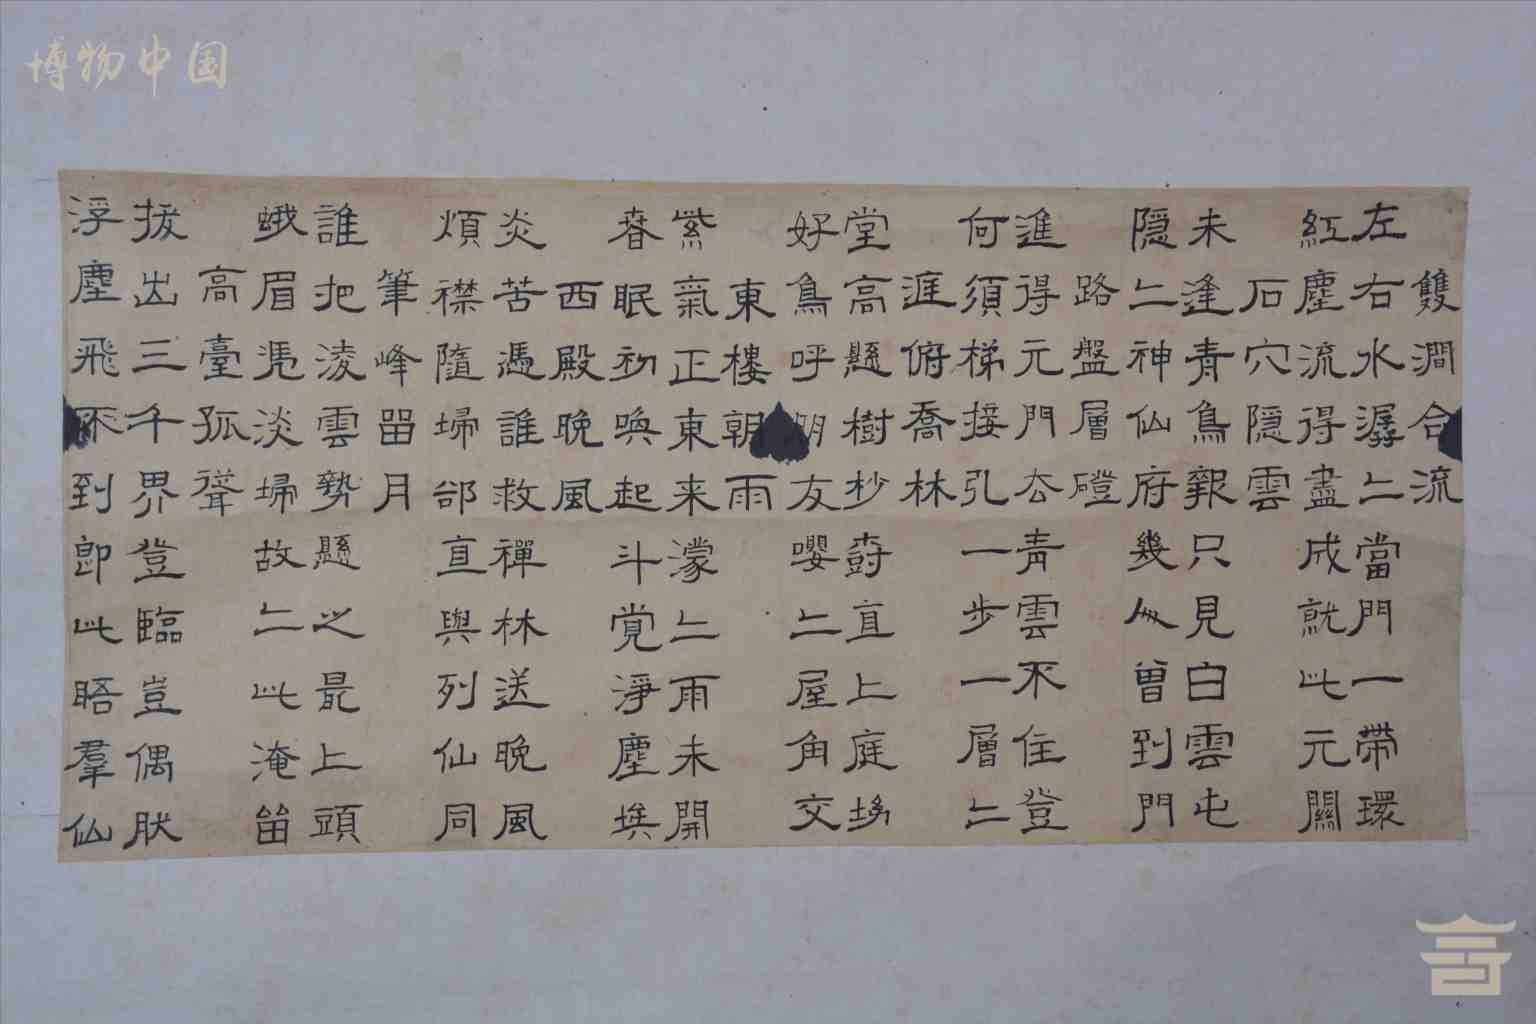 博物中国
雙澗合流
左右水潺〻當門一帶環
紅塵流得盡成就此元關
石穴隱雲
未逢青鳥報只見白雲屯
隐〻神仙府幾人曾到門
路盤層磴
進得元門去青雲不住登
何須梯接引一步一層〻
涯俯喬林
堂高懸樹杪蔚直上庭坳
好鳥呼朋友嚶〻屋角交
東樓朝雨
紫氣正東来濛〻雨未開
春眠初喚起斗覚淨塵埃
西殿晚風
炎苦憑誰救禪林送晚風
煩襟隨埽郤直與列仙同
筆峰留月
誰把淩雲勢懸之最上頭
蛾眉凴淡埽故〻此淹留
高臺孤聳
拔出三千界登臨豈偶肰
浮塵飛不到卽此晤羣仙